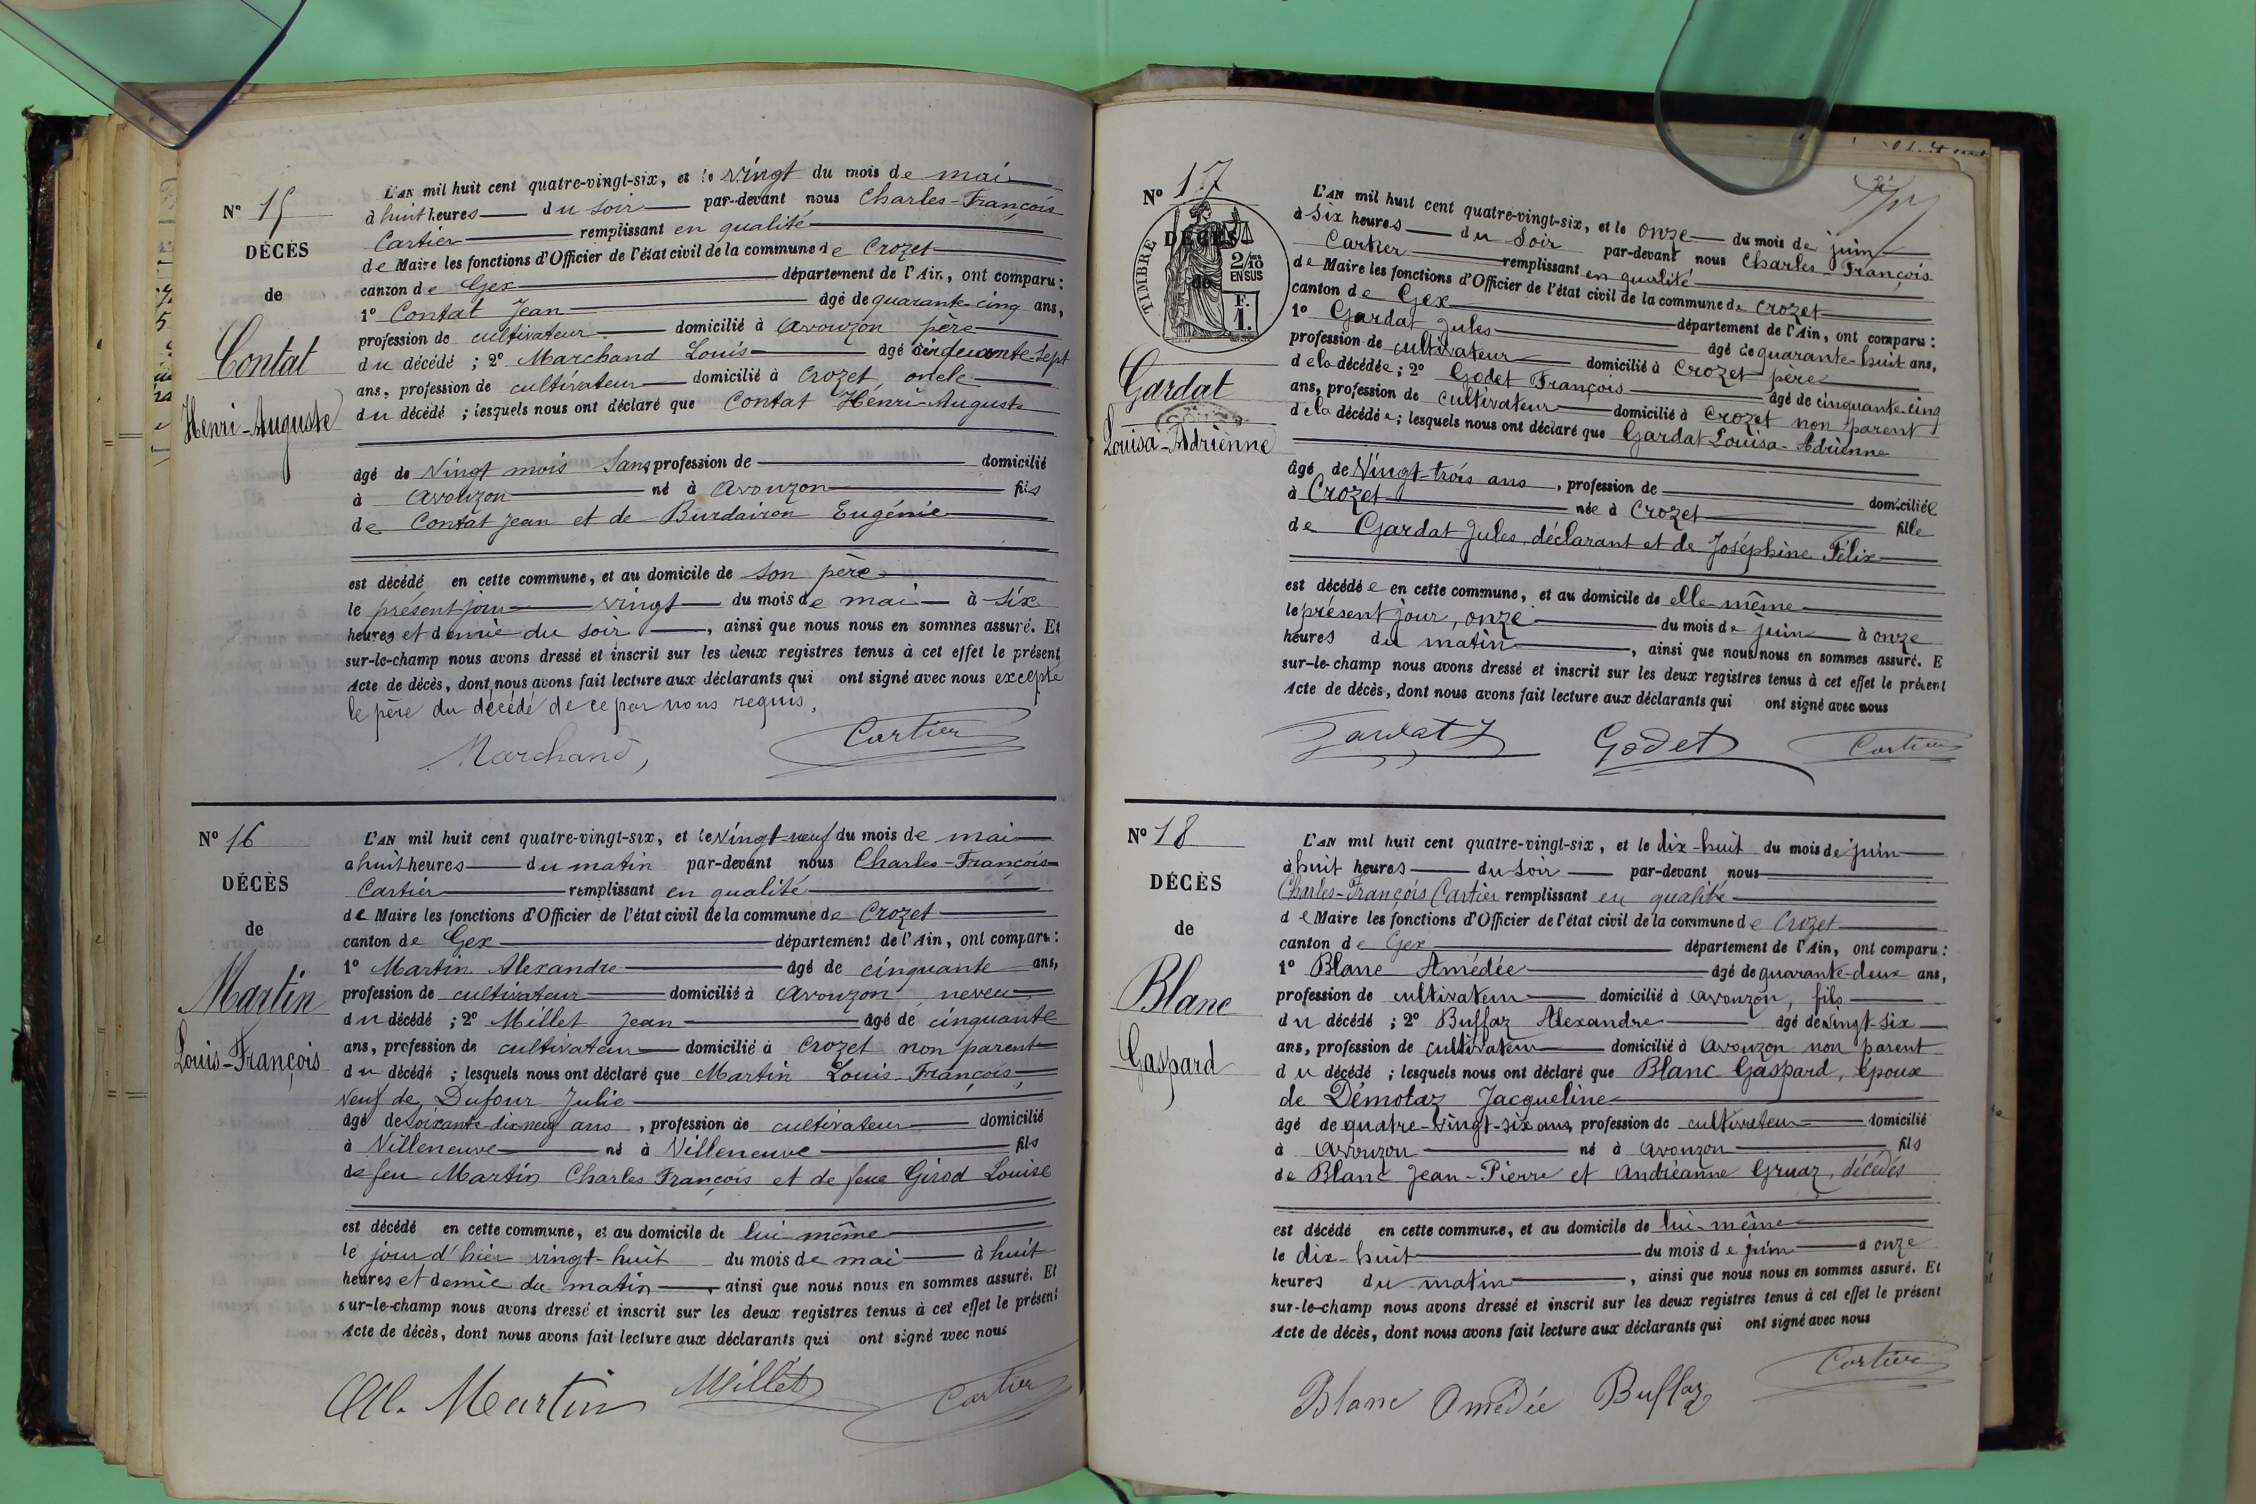 N° 15
DÉCÈS
de
Contat
Henri-Auguste
L'AN mil huit cent quatre-vingt-six, et le vingt du mois de mai
à huit heures du soir par-devant nous Charles-François
Cartier remplissant en qualité
de Maire les fonctions d'Officier de l'état civil de la commune de Crozet
canton de Gex département de l'Ain, ont comparu :
1° Contat Jean âgé de quarante-cinq ans,
profession de cultivateur domicilié à Avouzon père
du décédé ; 2° Marchand Louis âgé cinquante-sept
ans, profession de cultivateur domicilié à Crozet, oncle
du décédé ; lesquels nous ont déclaré que Contat Henri-Auguste
âgé de vingt mois sans profession de domicilié
à Avouzon né à Avouzon fils
de Contat Jean et de Burdairon Eugénie
est décédé en cette commune, et au domicile de son père
le présent jour vingt du mois de mai à six
heures et demie du soir, ainsi que nous nous en sommes assuré. Et
sur-le-champ nous avons dressé et inscrit sur les deux registres tenus à cet effet le présent
Acte de décès, dont nous avons fait lecture aux déclarants qui ont signé avec nous excepté
le père du décédé de ce par nous requis.
Marchand, Cartier
N° 16
DÉCÈS
de
Martin
Louis-François
L'AN mil huit cent quatre-vingt-six, et le vingt-neuf du mois de mai
a huit heures du matin par-devant nous Charles-François
Cartier remplissant en qualité
de Maire les fonctions d'Officier de l'état civil de la commune de Crozet
canton de Gex département de l'Ain, ont comparu :
1° Martin Alexandre âgé de cinquante ans,
profession de cultivateur domicilié à Avouzon neveu
du décédé ; 2° Millet Jean âgé de cinquante
ans, profession de cultivateur domicilié à Crozet non parent
du décédé ; lesquels nous ont déclaré que Martin Louis François,
veuf de Dufour Julie
âgé de soixante-dix-neuf ans, profession de cultivateur domicilié
à Villeneuve né à Villeneuve fils
de feu Martin Charles François et de feue Girod Louise
est décédé en cette commune, et au domicile de lui-même
le jour d'hier vingt-huit du mois de mai à huit
heures et demie du matin, ainsi que nous nous en sommes assuré. Et
sur-le-champ nous avons dressé et inscrit sur les deux registres tenus à cet effet le présent
Acte de décès, dont nous avons fait lecture aux déclarants qui ont signé avec nous
Al. Martin Millet Cartier
N° 17
DÉCÈS
de
TIMBRE
2/10
EN SUS
F.
1.
Gardat
Louisa-Adrienne
L'AN mil huit cent quatre-vingt-six, et le onze du mois de juin
à six heures du soir par-devant nous Charles François
Cartier remplissant en qualité
de Maire les fonctions d'Officier de l'état civil de la commune de Crozet
canton de Gex département de l'Ain, ont comparu :
1° Gardat Jules âgé de quarante-huit ans,
profession de cultivateur domicilié à Crozet père
de la décédée ; 2° Godet François âgé de cinquante-cinq
ans, profession de cultivateur domicilié à Crozet non parent
de la décédée ; lesquels nous ont déclaré que Gardat Louisa-Adrienne
âgé de vingt-trois ans, profession de domiciliée
à Crozet née à Crozet fille
de Gardat Jules, déclarant et de Joséphine Félix
est décédée en cette commune, et au domicile de elle-même
le présent jour, onze du mois de juin à onze
heures du matin, ainsi que nous nous en sommes assuré. E
sur-le-champ nous avons dressé et inscrit sur les deux registres tenus à cet effet le présent
Acte de décès, dont nous avons fait lecture aux déclarants qui ont signé avec nous
Gardat J Godet Cartier
N° 18
DÉCÈS
de
Blanc
Gaspard
L'AN mil huit cent quatre-vingt-six, et le dix-huit du mois de juin
à huit heures du soir par-devant nous
Charles-François Cartier remplissant en qualité
de Maire les fonctions d'Officier de l'état civil de la commune de Crozet
canton de Gex département de l'Ain, ont comparu :
1° Blanc Amédée âgé de quarante-deux ans,
profession de cultivateur domicilié à Avouzon, fils
du décédé ; 2° Buffaz Alexandre âgé de vingt-six
ans, profession de cultivateur domicilié à Avouzon non parent
du décédé ; lesquels nous ont déclaré que Blanc Gaspard, époux
de Démotaz Jacqueline
âgé de quatre-vingt-six ans, profession de cultivateur domicilié
à Avouzon né à Avouzon fils
de Blanc Jean-Pierre et Andréanne Gruaz, décédés
est décédé en cette commune, et au domicile de lui-même
le dix-huit du mois de juin à onze
heures du matin, ainsi que nous nous en sommes assuré. Et
sur-le-champ nous avons dressé et inscrit sur les deux registres tenus à cet effet le présent
Acte de décès, dont nous avons fait lecture aux déclarants qui ont signé avec nous
Blanc Amédée Buffaz Cartier